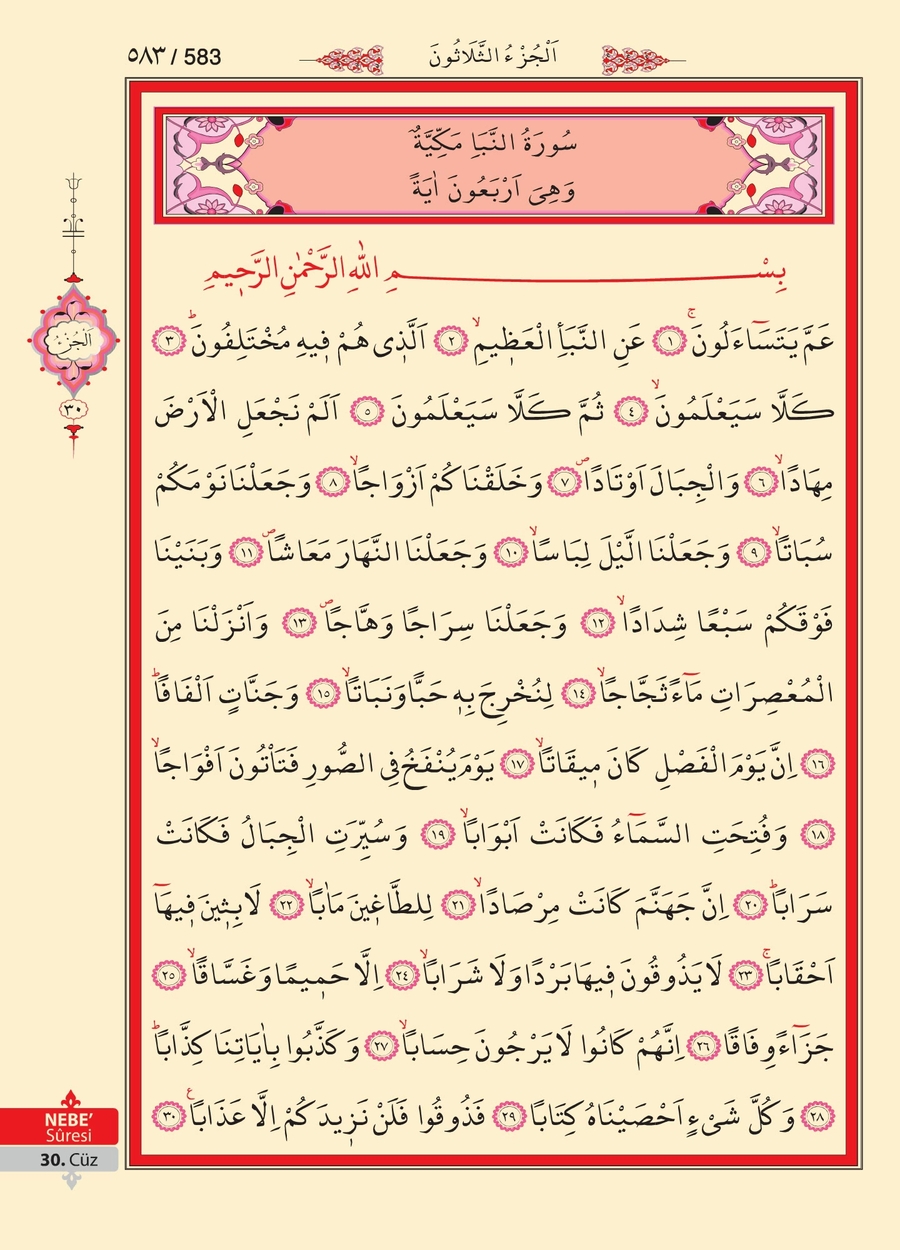 ٥٨٣ / 583
اَلْجُزْءُ الثَّلَاثُونَ
سُورَةُ النَّبَأِ مَكِّيَّةٌ
وَهِىَ اَرْبَعُونَ اٰيَةً
بِسْمِ اللّٰهِ الرَّحْمٰنِ الرَّحٖيمِ
عَمَّ يَتَسَٓاءَلُونَۚ ﴿١﴾ عَنِ النَّبَأِ الْعَظٖيمِۙ ﴿٢﴾ اَلَّذٖى هُمْ فٖيهِ مُخْتَلِفُونَؕ ﴿٣﴾
كَلَّا سَيَعْلَمُونَۙ ﴿٤﴾ ثُمَّ كَلَّا سَيَعْلَمُونَ ﴿٥﴾ اَلَمْ نَجْعَلِ الْاَرْضَ
مِهَادًاۙ ﴿٦﴾ وَالْجِبَالَ اَوْتَادًاۖ ﴿٧﴾ وَخَلَقْنَاكُمْ اَزْوَاجًاۙ ﴿٨﴾ وَجَعَلْنَا نَوْمَكُمْ
سُبَاتًاۙ ﴿٩﴾ وَجَعَلْنَا الَّيْلَ لِبَاسًاۙ ﴿١٠﴾ وَجَعَلْنَا النَّهَارَ مَعَاشًاۖ ﴿١١﴾ وَبَنَيْنَا
فَوْقَكُمْ سَبْعًا شِدَادًاۙ ﴿١٢﴾ وَجَعَلْنَا سِرَاجًا وَهَّاجًاۖ ﴿١٣﴾ وَاَنْزَلْنَا مِنَ
الْمُعْصِرَاتِ مَٓاءً ثَجَّاجًاۙ ﴿١٤﴾ لِنُخْرِجَ بِهٖ حَبًّا وَنَبَاتًاۙ ﴿١٥﴾ وَجَنَّاتٍ اَلْفَافًاؕ
﴿١٦﴾ اِنَّ يَوْمَ الْفَصْلِ كَانَ مٖيقَاتًاۙ ﴿١٧﴾ يَوْمَ يُنْفَخُ فِى الصُّورِ فَتَأْتُونَ اَفْوَاجًاۙ
﴿١٨﴾ وَفُتِحَتِ السَّمَٓاءُ فَكَانَتْ اَبْوَابًاۙ ﴿١٩﴾ وَسُيِّرَتِ الْجِبَالُ فَكَانَتْ
سَرَابًاؕ ﴿٢٠﴾ اِنَّ جَهَنَّمَ كَانَتْ مِرْصَادًاۙ ﴿٢١﴾ لِلطَّاغٖينَ مَاٰبًاۙ ﴿٢٢﴾ لَابِثٖينَ فٖيهَٓا
اَحْقَابًاۚ ﴿٢٣﴾ لَا يَذُوقُونَ فٖيهَا بَرْدًا وَلَا شَرَابًاۙ ﴿٢٤﴾ اِلَّا حَمٖيمًا وَغَسَّاقًاۙ ﴿٢٥﴾
جَزَٓاءً وِفَاقًا ﴿٢٦﴾ اِنَّهُمْ كَانُوا لَا يَرْجُونَ حِسَابًاۙ ﴿٢٧﴾ وَكَذَّبُوا بِاٰيَاتِنَا كِذَّابًاؕ
﴿٢٨﴾ وَكُلَّ شَىْءٍ اَحْصَيْنَاهُ كِتَابًا ﴿٢٩﴾ فَذُوقُوا فَلَنْ نَزٖيدَكُمْ اِلَّا عَذَابًاع ﴿٣٠﴾
اَلْجُزْءُ
٣٠
NEBE’
Sûresi
30. Cüz